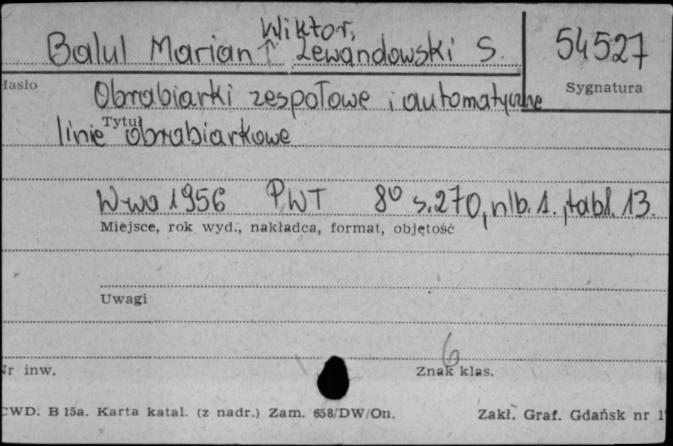 Wiktor,
Balul Marian ↑ Lewandowski S. 54527
Hasło Sygnatura
Obrabiarki zespołowe i automatyczne
Tytuł
linie obrabiarkowe
W-wa 1956 PWT 8⁰ s.270, nlb. 1., tabl. 13.
Miejsce, rok wyd., nakładca, format, objętość
Uwagi
6
Nr inw. Znak klas.
CWD. B 15a. Karta katal. (z nadr.) Zam. 658/DW/On. Zakł. Graf. Gdańsk nr 1